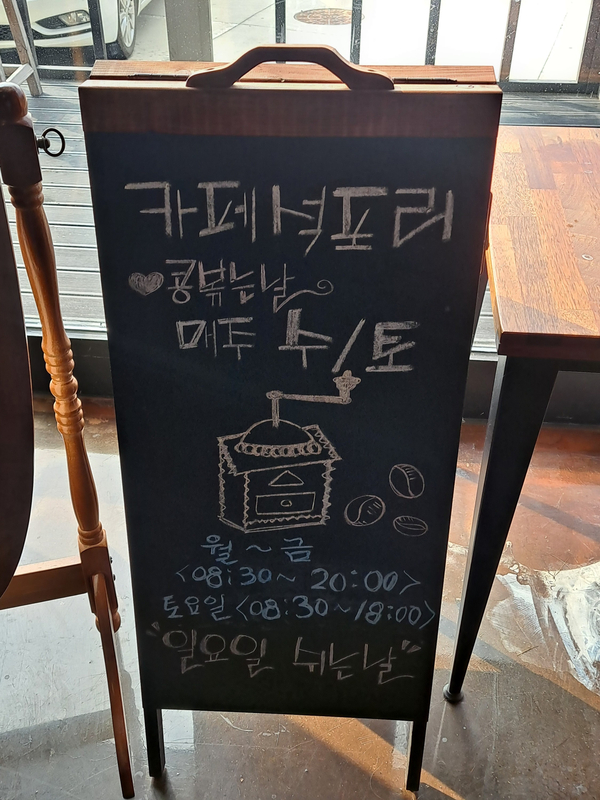 카페
콩볶는날
매주 수/토
월 ~ 금
<08:30~ 20:00>
토요일<08:30~18:00>
"일요일 쉬는날"